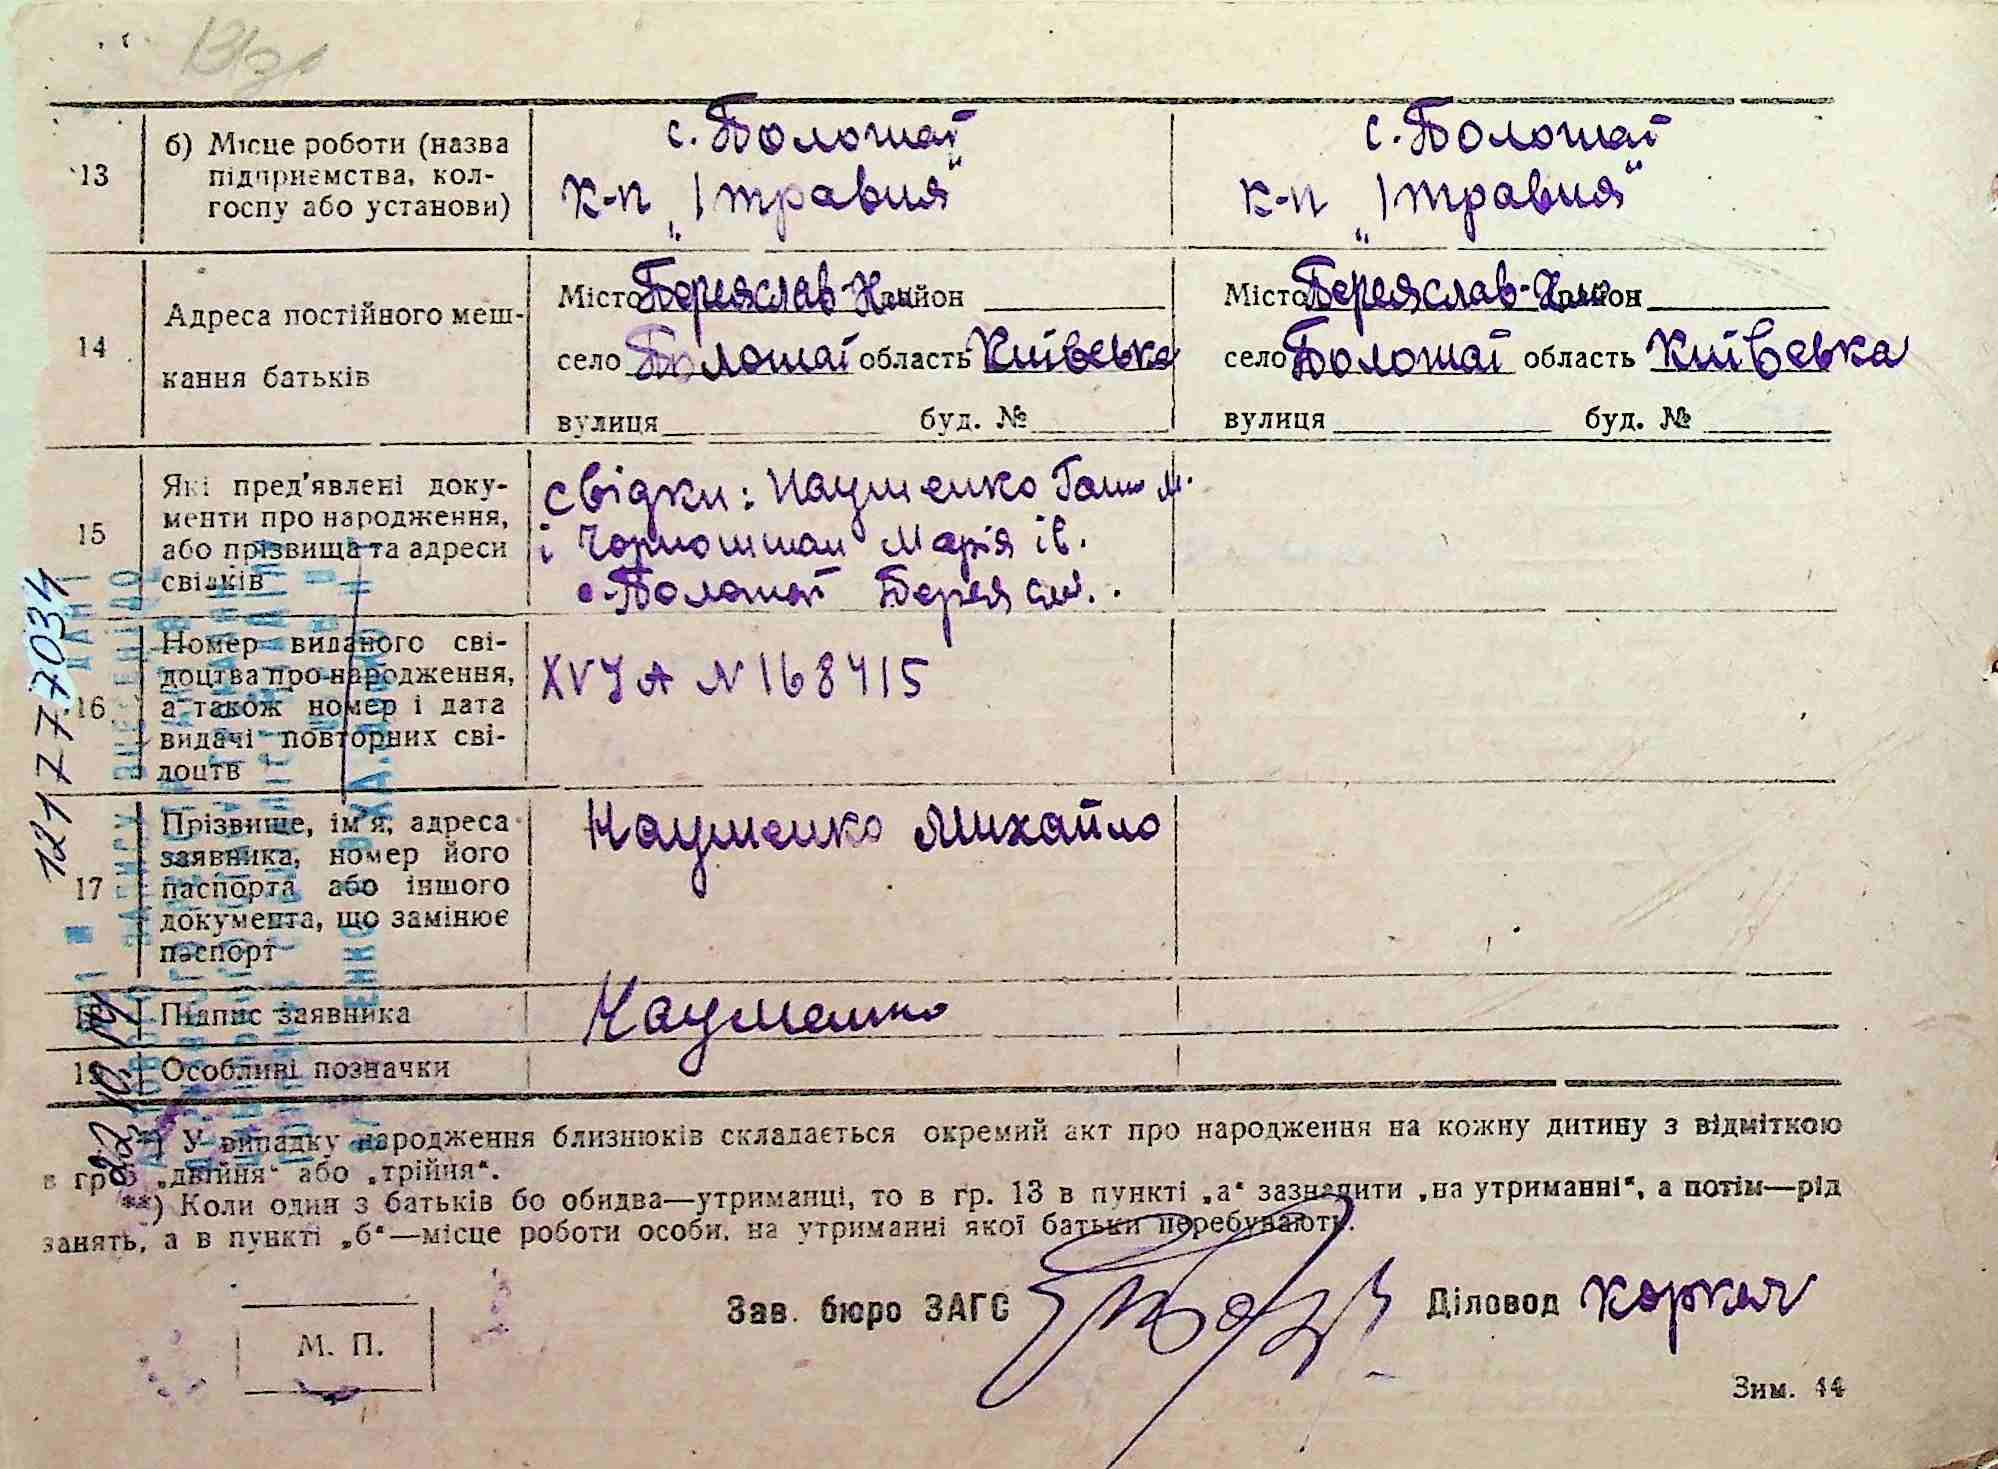 13
б) Місце роботи (назва
підприємства, кол-
госпу або установи)
с. Положаї
к-п „1 травня“
с. Положаї
к-п „1 травня“
14
Адреса постійного меш-
кання батьків
Місто Переяслав-Хм район
село Положаї область Київська
вулиця буд. №
Місто Переяслав-Хм район
село Положаї область Київська
вулиця буд. №
15
Які пред'явлені доку-
менти про народження,
або прізвища та адреси
свідків
свідки: Науменко Ганна М.
і Марія ів.
с. Положаї Переясл.
16
Номер виданого сві-
доцтва про народження,
а також номер і дата
видачі повторних сві-
доцтв
XVJ А N 168415
17
Прізвище, ім'я, адреса
заявника, номер його
паспорта або іншого
документа, що замінює
паспорт
Науменко Михайло
18
Підпис заявника
Науменко
19
Особливі позначки
*) У випадку народження близнюків складається окремий акт про народження на кожну дитину з відміткою
в гр. 3 „двійня“ або „трійня“.
**) Коли один з батьків бо обидва—утриманці, то в гр. 13 в пункті „а“ зазначити „на утриманні“, а потім—рід
занять, а в пункті „б“—місце роботи особи, на утриманні якої батьки перебувають.
Зав. бюро ЗАГС
Діловод
М. П.
Зим. 44
121777034
22.10.